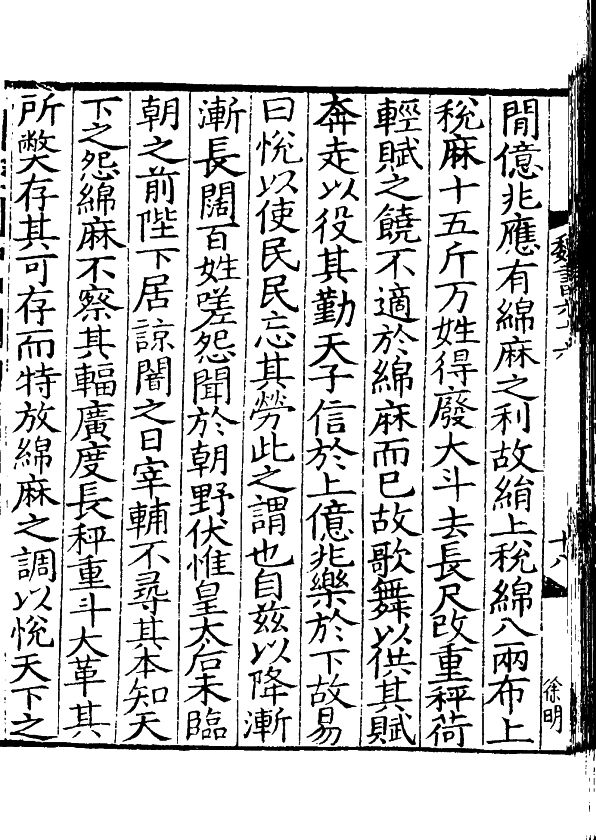 魏書六十六
十八
徐明
閒億兆應有綿麻之利故絹上稅綿八兩布上
稅麻十五斤万姓得廢大斗去長尺改重秤荷
輕賦之饒不適於綿麻而已故歌舞以供其賦
奔走以役其勤天子信於上億兆樂於下故易
曰悅以使民民忘其勞此之謂也自茲以降漸
漸長闊百姓嗟怨聞於朝野伏惟皇太后未臨
朝之前陛下居諒闇之日宰輔不尋其本知天
下之怨綿麻不察其輻廣度長秤重斗大革其
所弊存其可存而特放綿麻之調以悅天下之